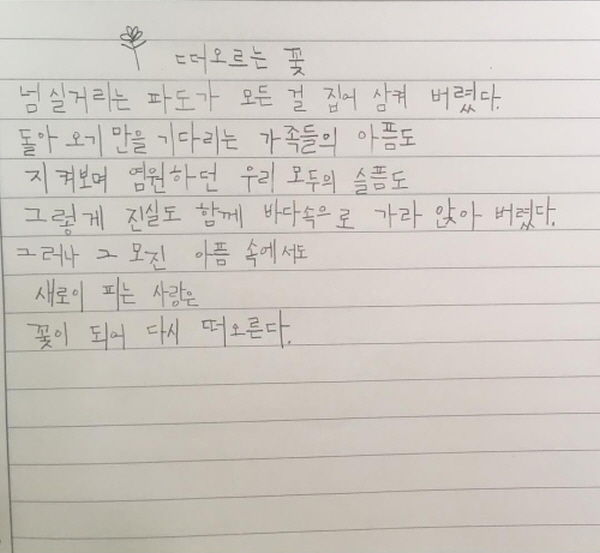 떠오르는 꽃
넘실거리는 파도가 모든 걸 집어 삼켜 버렸다.
돌아 오기 만을 기다리는 가족들의 아픔도
지켜보며 염원하던 우리 모두의 슬픔도
그렇게 진실도 함께 바다속으로 가라 앉아 버렸다.
그러나 그 모진 아픔 속에서도
새로이 피는 사랑은
꽃이 되어 다시 떠오른다.